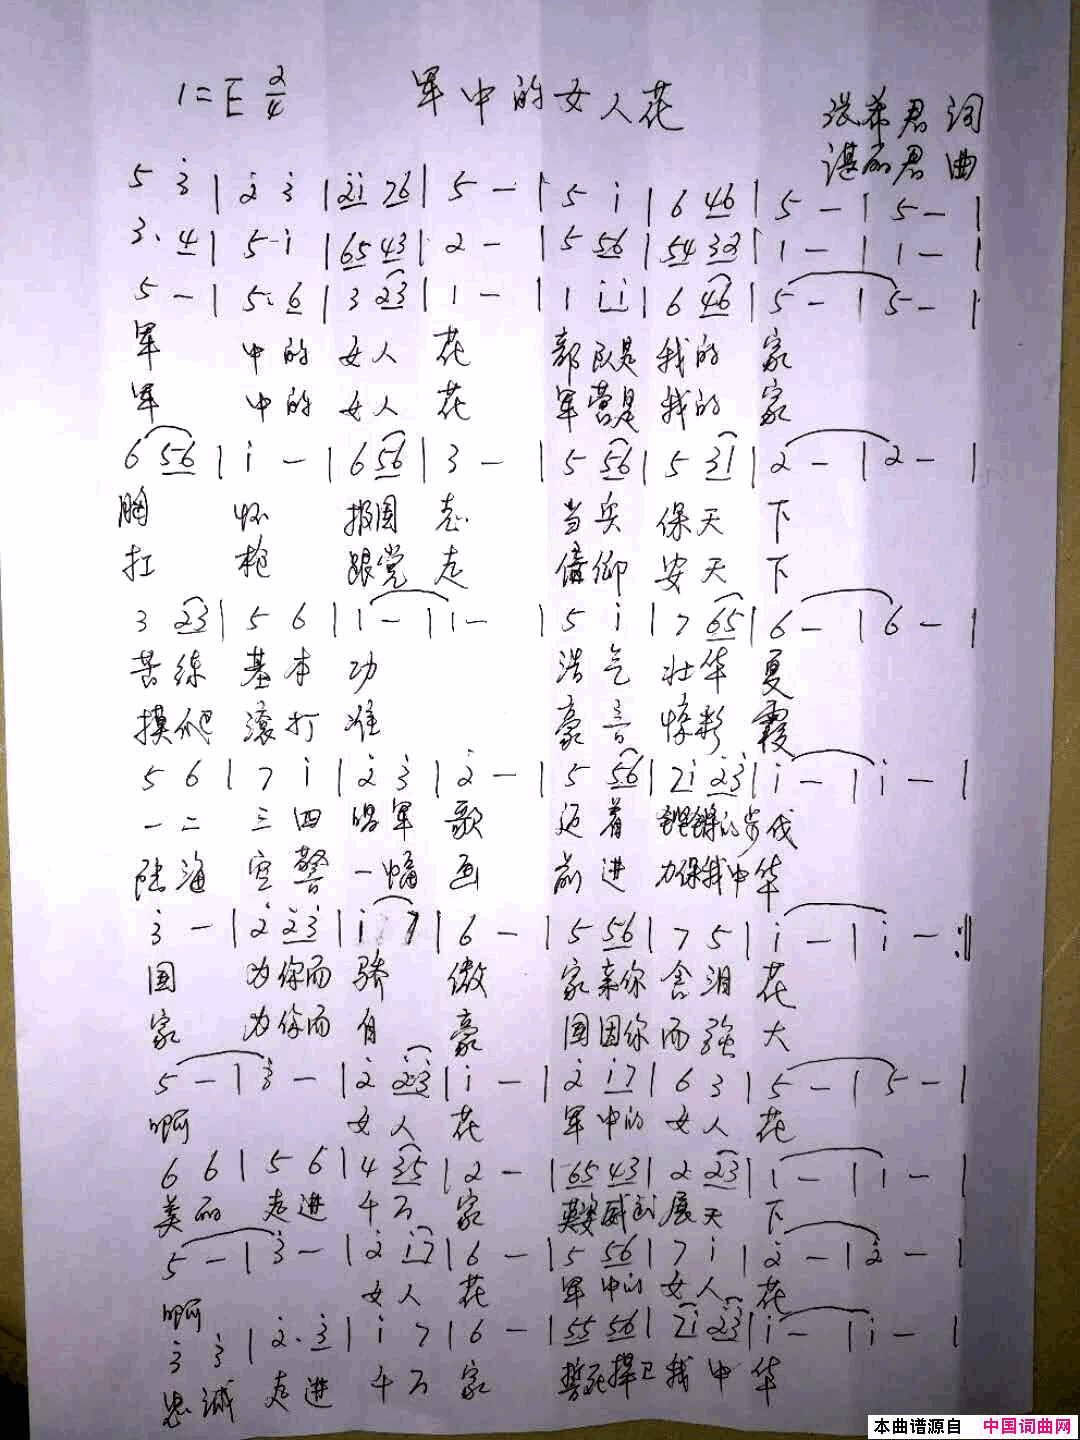 1=E 2/4 军中的女人花
张希君 词
谌丽君 曲
5 3̇ | 2̇ 3̇ | 2̇1̇ 76 | 5 — | 5 1̇ | 6 46 | 5 — | 5 — |
3. 4 | 5·1̇ | 65 43 | 2 — | 5 56 | 54 32 | 1 — | 1 — |
5 — | 5. 6 | 3 23 | 1 — | 1 1̇1̇ | 6 46 | 5 — | 5 — |
军 中的 女人 花 部队是 我的 家
军 中的 女人 花 军营是 我的 家
6 56 | 1̇ — | 6 56 | 3 — | 5 56 | 5 31 | 2 — | 2 — |
胸 怀 报国 志 当兵 保天 下
扛 枪 跟党 走 信仰 安天 下
3 23 | 5 6 | 1 — | 1 — | 5 1̇ | 7 65 | 6 — | 6 — |
苦练 基本 功 浩气 壮华 夏
摸爬 滚打 准 豪言 惊彩 霞
5 6 | 7 1̇ | 2̇ 3̇ | 2̇ — | 5 56 | 71̇ 2̇3̇ | 1̇ — | 1̇ — |
一二 三四 唱军 歌 迈着 铿锵的步伐
陆海 空警 一幅 画 前进 力保我中华
3̇ — | 2̇ 2̇3̇ | 1̇ 7 | 6 — | 5 56 | 7 5 | 1̇ — | 1̇ — :‖
国 为你而 骄 傲 家亲你 含泪 花
家 为你而 自 豪 国因你 而强 大
5 — | 3̇ — | 2̇ 2̇3̇ | 1̇ — | 2̇ 1̇7 | 6 3 | 5 — | 5 — |
啊 女人 花 军中的 女人 花
6 6 | 5 6 | 4 35 | 2 — | 65 43 | 2 23 | 1 — | 1 — |
美丽 走进 千万 家 英姿威武 展天 下
5 — | 3̇ — | 2̇ 1̇7 | 6 — | 5 56 | 7 1̇ | 2̇ — | 2̇ — |
啊 女人 花 军中的 女人 花
3̇ 3̇ | 2̇. 3̇ | 1̇ 7 | 6 — | 55 56 | 71̇ 2̇3̇ | 1̇ — | 1̇ — |
忠诚 走进 千万 家 誓死捍卫 我中 华
本曲谱源自 中国词曲网